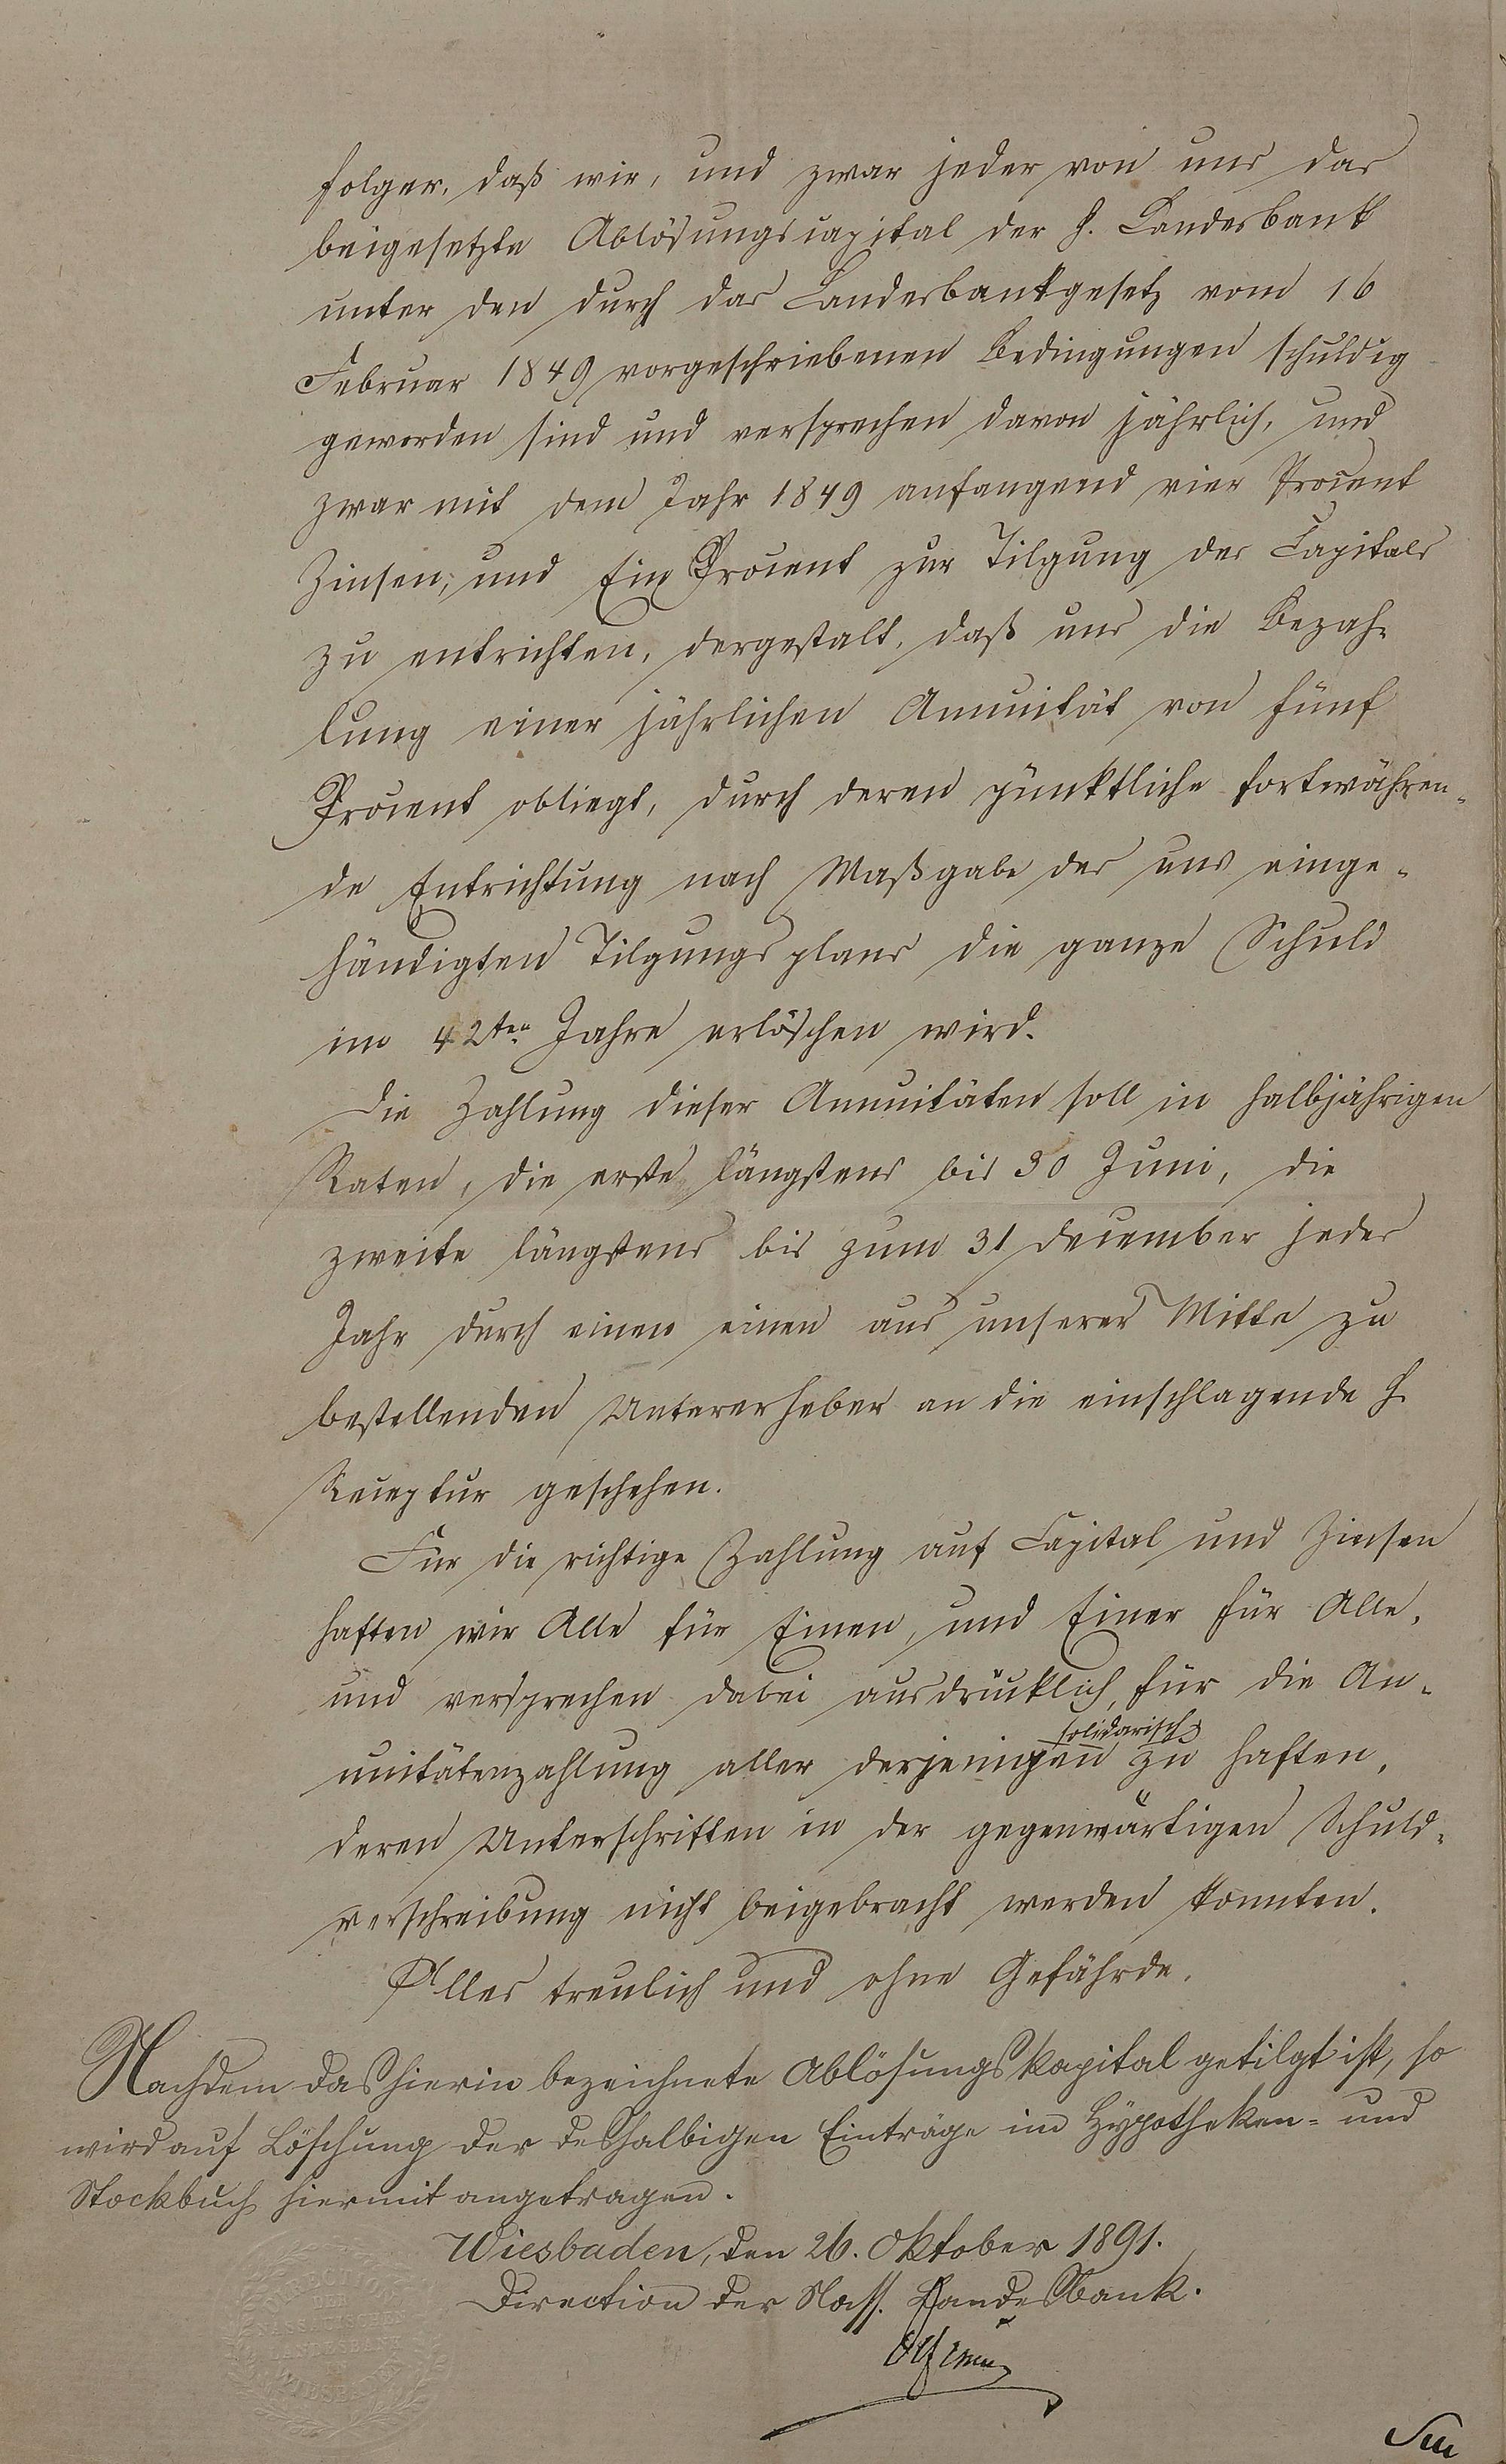 folger, daß wir, und zwar jeder von uns das
beigesetzte Ablösungscapital der H. Landesbank
unter den durch das Landesbankgesetz vom 16
Februar 1849 vorgeschriebenen Bedingungen schuldig
geworden sind und versprechen davon jährlich, und
zwar mit dem Jahr 1849 anfangend vier Procent
Zinsen, und Ein Procent zur Tilgung des Capitals
zu entrichten, dergestalt, daß uns die Bezah-
lung einer jährlichen Annuität von fünf
Procent obliegt, durch deren pünktliche fortwähren-
de Entrichtung nach Maßgabe des uns einge-
händigten Tilgungsplans die ganze Schuld
im 42ten Jahre erlöschen wird.
Die Zahlung dieser Annuitäten soll in halbjährigen
Raten, die erste längstens bis 30 Juni, die
zweite längstens bis zum 31 December jedes
Jahr durch einen einen aus unserer Mitte zu
bestellenden Untererheber an die einschlagende H.
Receptur geschehen.
Für die richtige Zahlung auf Capital und Zinsen
haften wir Alle für Einen, und Einer für Alle,
und versprechen dabei ausdrücklich, für die An-
nuitätenzahlung aller derjenigen solidarisch zu haften,
deren Unterschriften in der gegenwärtigen Schuld-
verschreibung nicht beigebracht werden konnten.
Alles treulich und ohne Gefährde.
Nachdem das hierin bezeichnete Ablösungskapital getilgt ist, so
wird auf Löschung der deßhalbigen Einträge im Hypotheken- und
Stockbuch hiermit angetragen.
Wiesbaden, den 26. Oktober 1891.
Direction der Nass. Landesbank.
DIRECTION
DER
NASSAUISCHEN
LANDESBANK
WIESBADEN